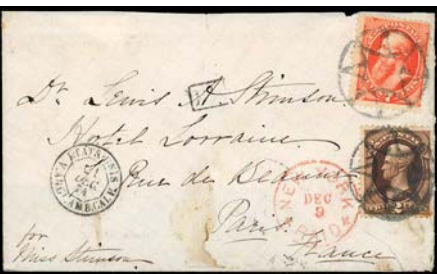 Dr Lewis A. Stimson.
Hotel Lorraine
Rue de Beaune
Paris
France
for
Miss Stimson
NEW YORK
DEC
9